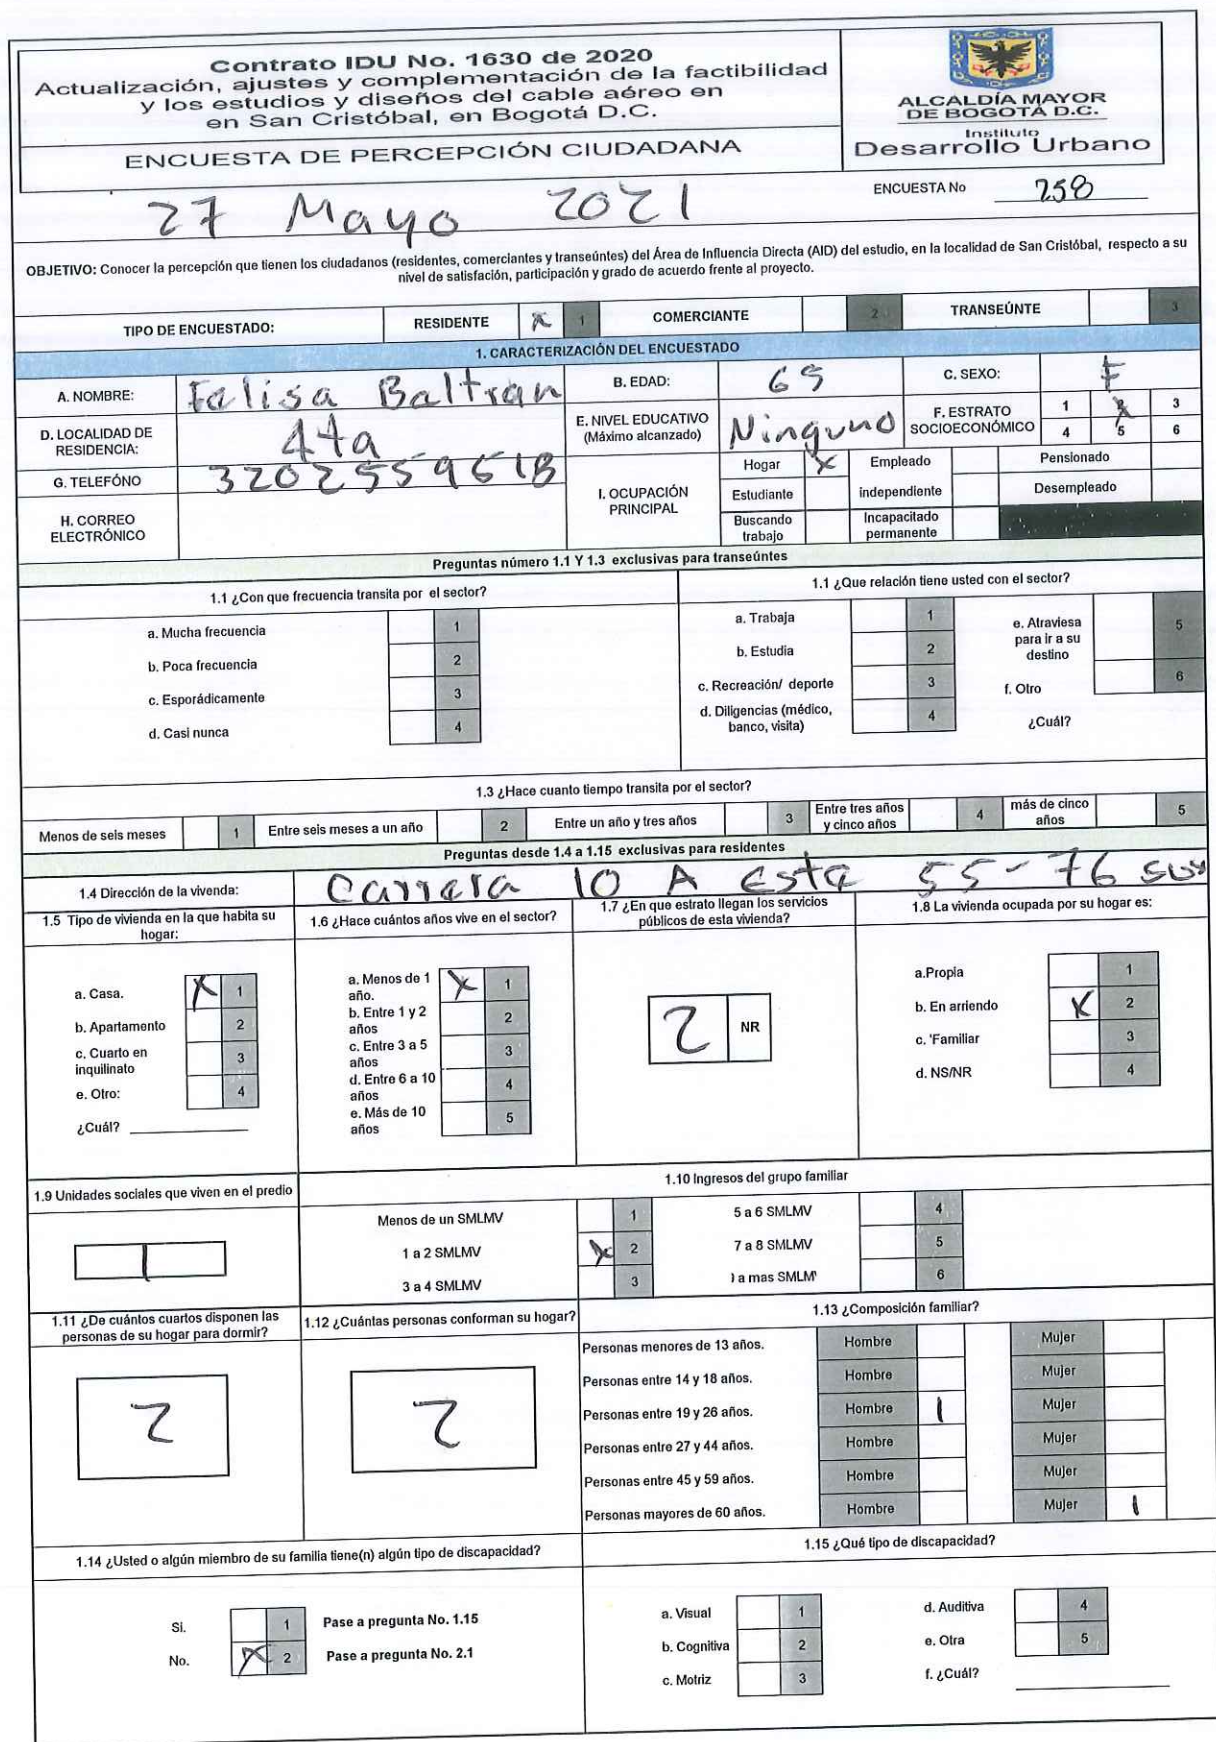 Contrato IDU No. 1630 de 2020
Actualización, ajustes y complementación de la factibilidad
y los estudios y diseños del cable aéreo en
en San Cristóbal, en Bogotá D.C.
ALCALDÍA MAYOR
DE BOGOTÁ D.C.
Instituto
Desarrollo Urbano
ENCUESTA DE PERCEPCIÓN CIUDADANA
27 Mayo 2021
ENCUESTA No 258
OBJETIVO: Conocer la percepción que tienen los ciudadanos (residentes, comerciantes y transeúntes) del Área de Influencia Directa (AID) del estudio, en la localidad de San Cristóbal, respecto a su
nivel de satisfacción, participación y grado de acuerdo frente al proyecto.
TIPO DE ENCUESTADO: RESIDENTE X 1 COMERCIANTE 2 TRANSEÚNTE 3
1. CARACTERIZACIÓN DEL ENCUESTADO
A. NOMBRE: Felisa Beltran B. EDAD: 65 C. SEXO: F
D. LOCALIDAD DE RESIDENCIA: 4ta E. NIVEL EDUCATIVO (Máximo alcanzado) Ninguno F. ESTRATO SOCIOECONÓMICO 1 X 3
4 5 6
G. TELEFÓNO I. OCUPACIÓN PRINCIPAL Hogar X Empleado Pensionado
Estudiante independiente Desempleado
H. CORREO ELECTRÓNICO Buscando trabajo Incapacitado permanente
Preguntas número 1.1 Y 1.3 exclusivas para transeúntes
1.1 ¿Con que frecuencia transita por el sector?
a. Mucha frecuencia 1
b. Poca frecuencia 2
c. Esporádicamente 3
d. Casi nunca 4
1.1 ¿Que relación tiene usted con el sector?
a. Trabaja 1
b. Estudia 2
c. Recreación/ deporte 3
d. Diligencias (médico, banco, visita) 4
e. Atraviesa para ir a su destino 5
f. Otro 6
¿Cuál?
1.3 ¿Hace cuanto tiempo transita por el sector?
Menos de seis meses 1 Entre seis meses a un año 2 Entre un año y tres años 3 Entre tres años y cinco años 4 más de cinco años 5
Preguntas desde 1.4 a 1.15 exclusivas para residentes
1.4 Dirección de la vivenda: Carrera 10 A Este 55-76 sur
1.5 Tipo de vivienda en la que habita su hogar:
a. Casa. X 1
b. Apartamento 2
c. Cuarto en inquilinato 3
e. Otro: 4
¿Cuál?
1.6 ¿Hace cuántos años vive en el sector?
a. Menos de 1 año. X 1
b. Entre 1 y 2 años 2
c. Entre 3 a 5 años 3
d. Entre 6 a 10 años 4
e. Más de 10 años 5
1.7 ¿En que estrato llegan los servicios públicos de esta vivienda?
2 NR
1.8 La vivienda ocupada por su hogar es:
a.Propia 1
b. En arriendo X 2
c. 'Familiar 3
d. NS/NR 4
1.9 Unidades sociales que viven en el predio
1
1.10 Ingresos del grupo familiar
Menos de un SMLMV 1 5 a 6 SMLMV 4
1 a 2 SMLMV X 2 7 a 8 SMLMV 5
3 a 4 SMLMV 3 a mas SMLM 6
1.11 ¿De cuántos cuartos disponen las personas de su hogar para dormir?
2
1.12 ¿Cuántas personas conforman su hogar?
2
1.13 ¿Composición familiar?
Personas menores de 13 años. Hombre Mujer
Personas entre 14 y 18 años. Hombre Mujer
Personas entre 19 y 26 años. Hombre 1 Mujer
Personas entre 27 y 44 años. Hombre Mujer
Personas entre 45 y 59 años. Hombre Mujer
Personas mayores de 60 años. Hombre Mujer 1
1.14 ¿Usted o algún miembro de su familia tiene(n) algún tipo de discapacidad?
Si. 1 Pase a pregunta No. 1.15
No. X 2 Pase a pregunta No. 2.1
1.15 ¿Qué tipo de discapacidad?
a. Visual 1 d. Auditiva 4
b. Cognitiva 2 e. Otra 5
c. Motriz 3 f. ¿Cuál?